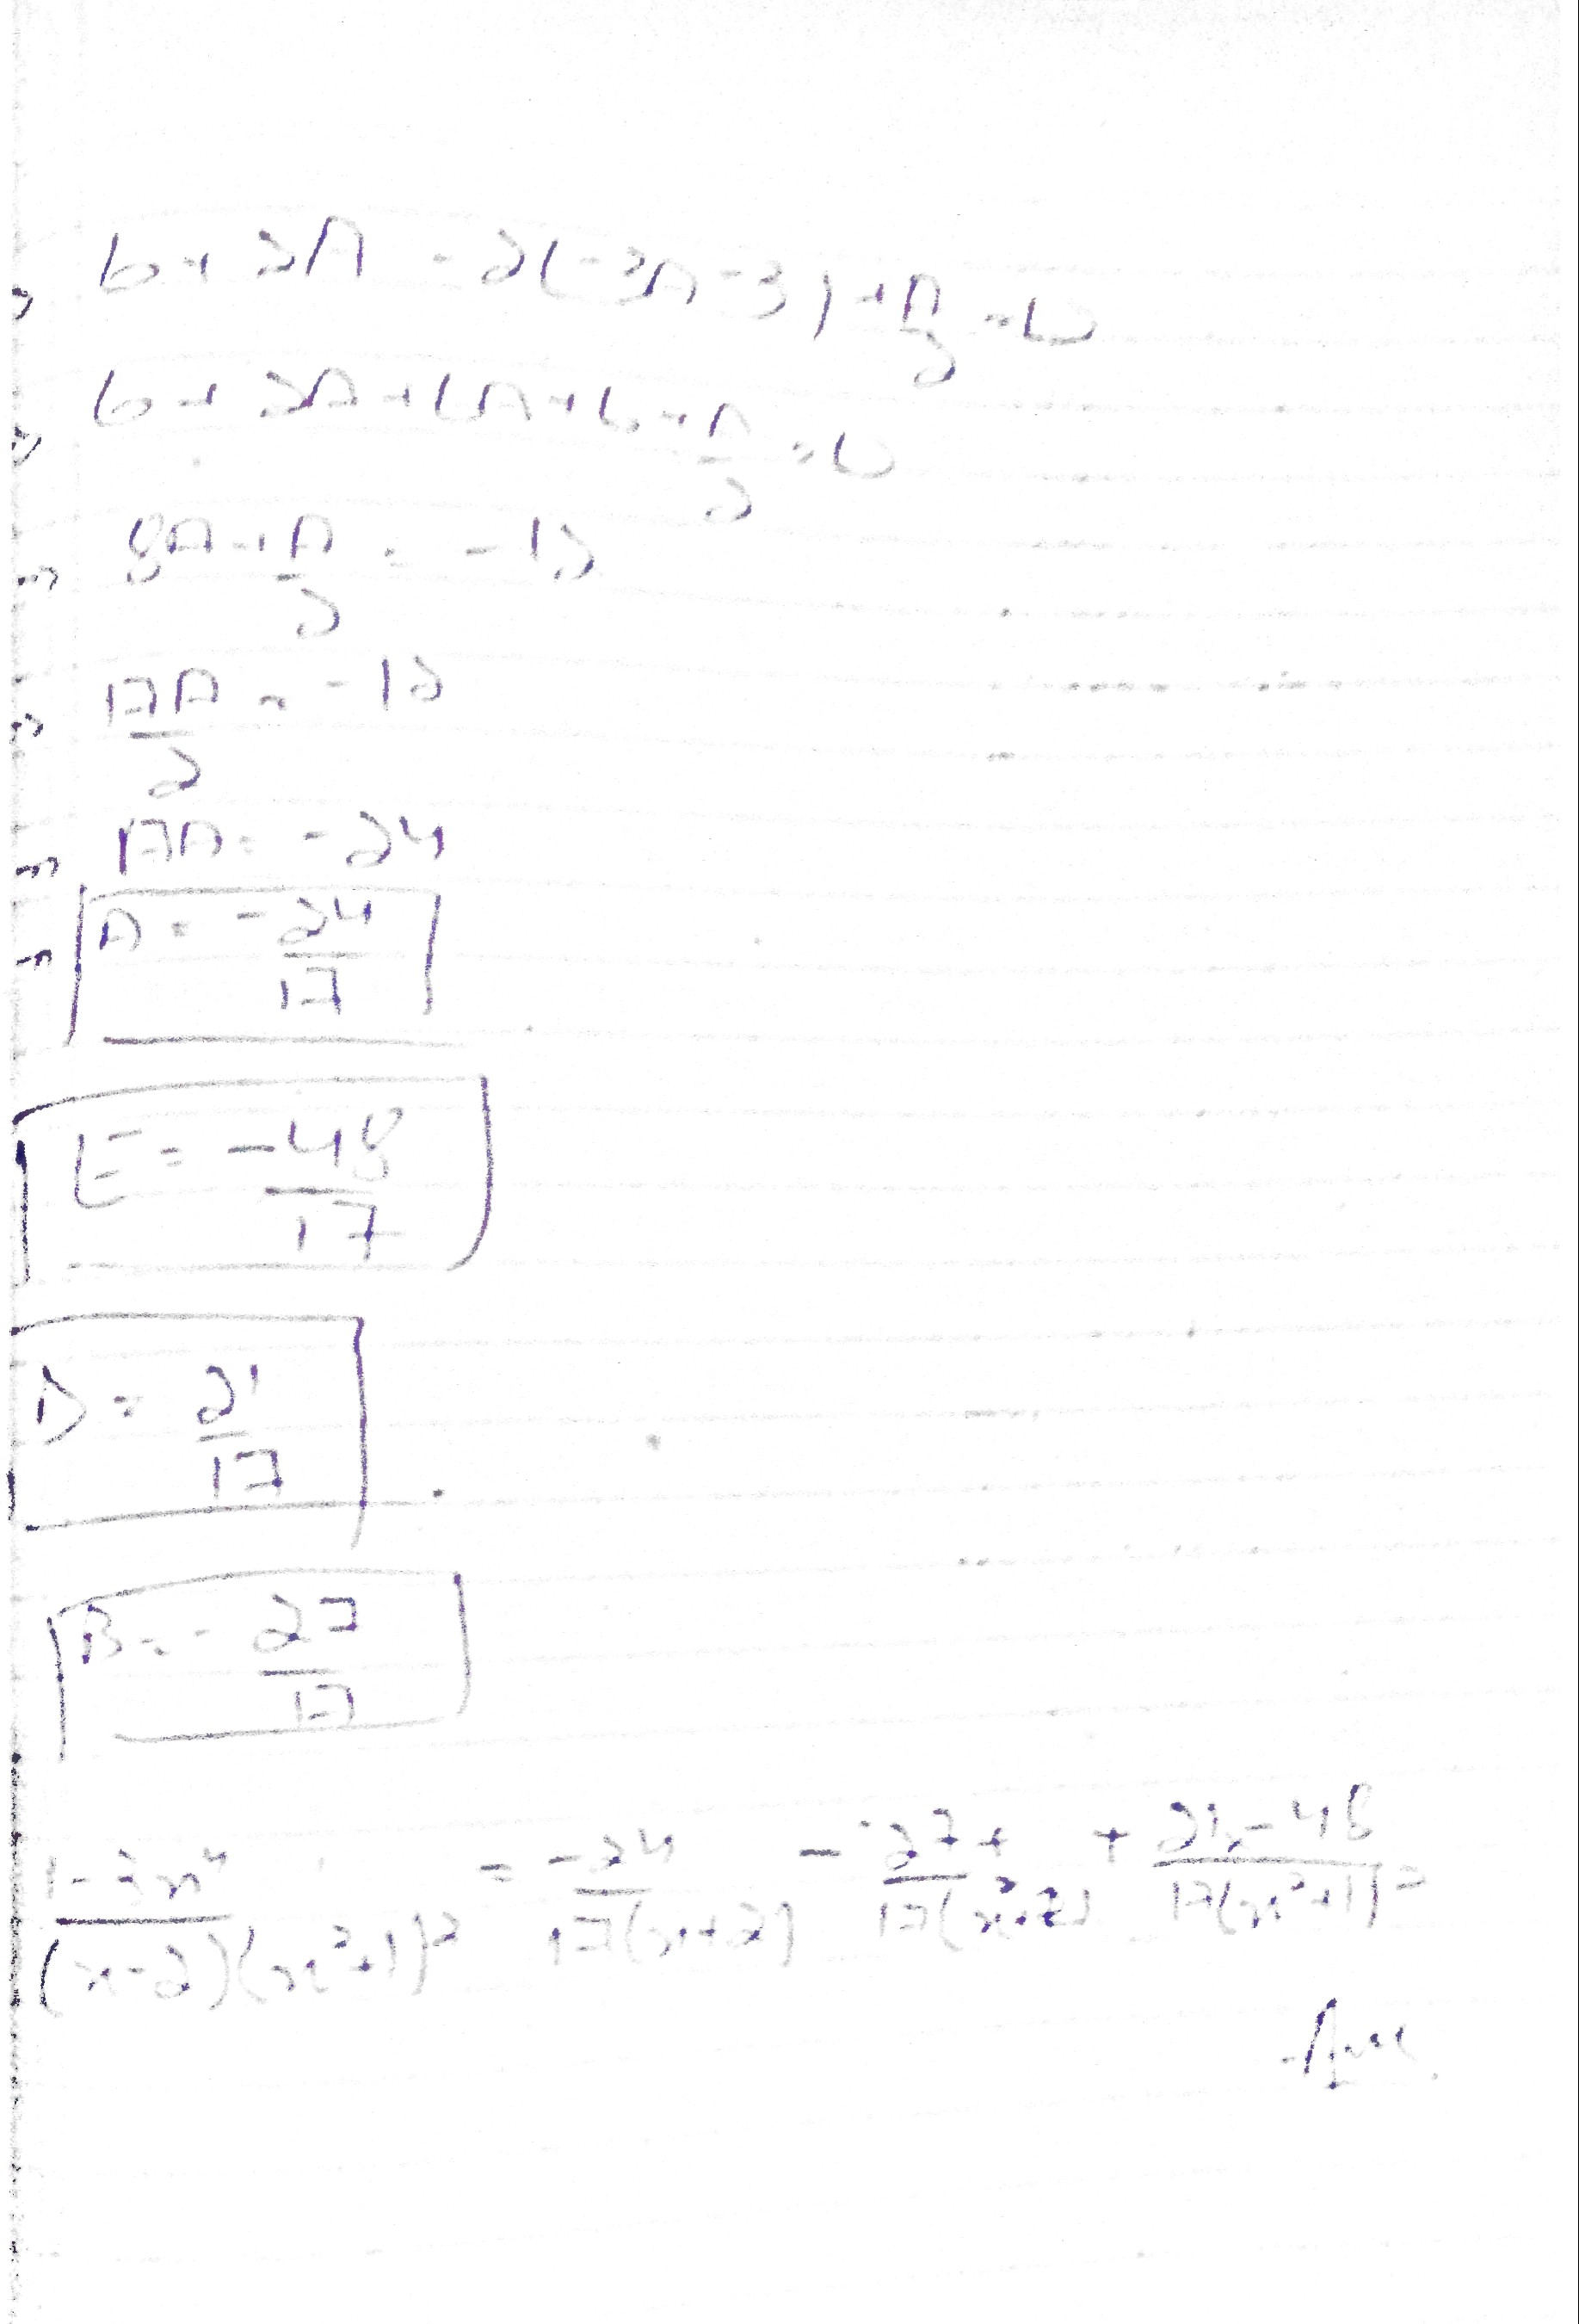 ⇒ 6 + 2A - 2(-3A - 3) + A/2 = 0
⇒ 6 + 2A + 6A + 6 + A/2 = 0
⇒ 8A + A/2 = -12
⇒ 17A/2 = -12
⇒ 17A = -24
⇒ A = -24/17
E = -48/17
D = 21/17
B = -27/17
1-3x⁴/(x-2)(x²+1)² = -24/17(x+2) - 27+/17(x²+2) + 21x-48/17(x²+1)²